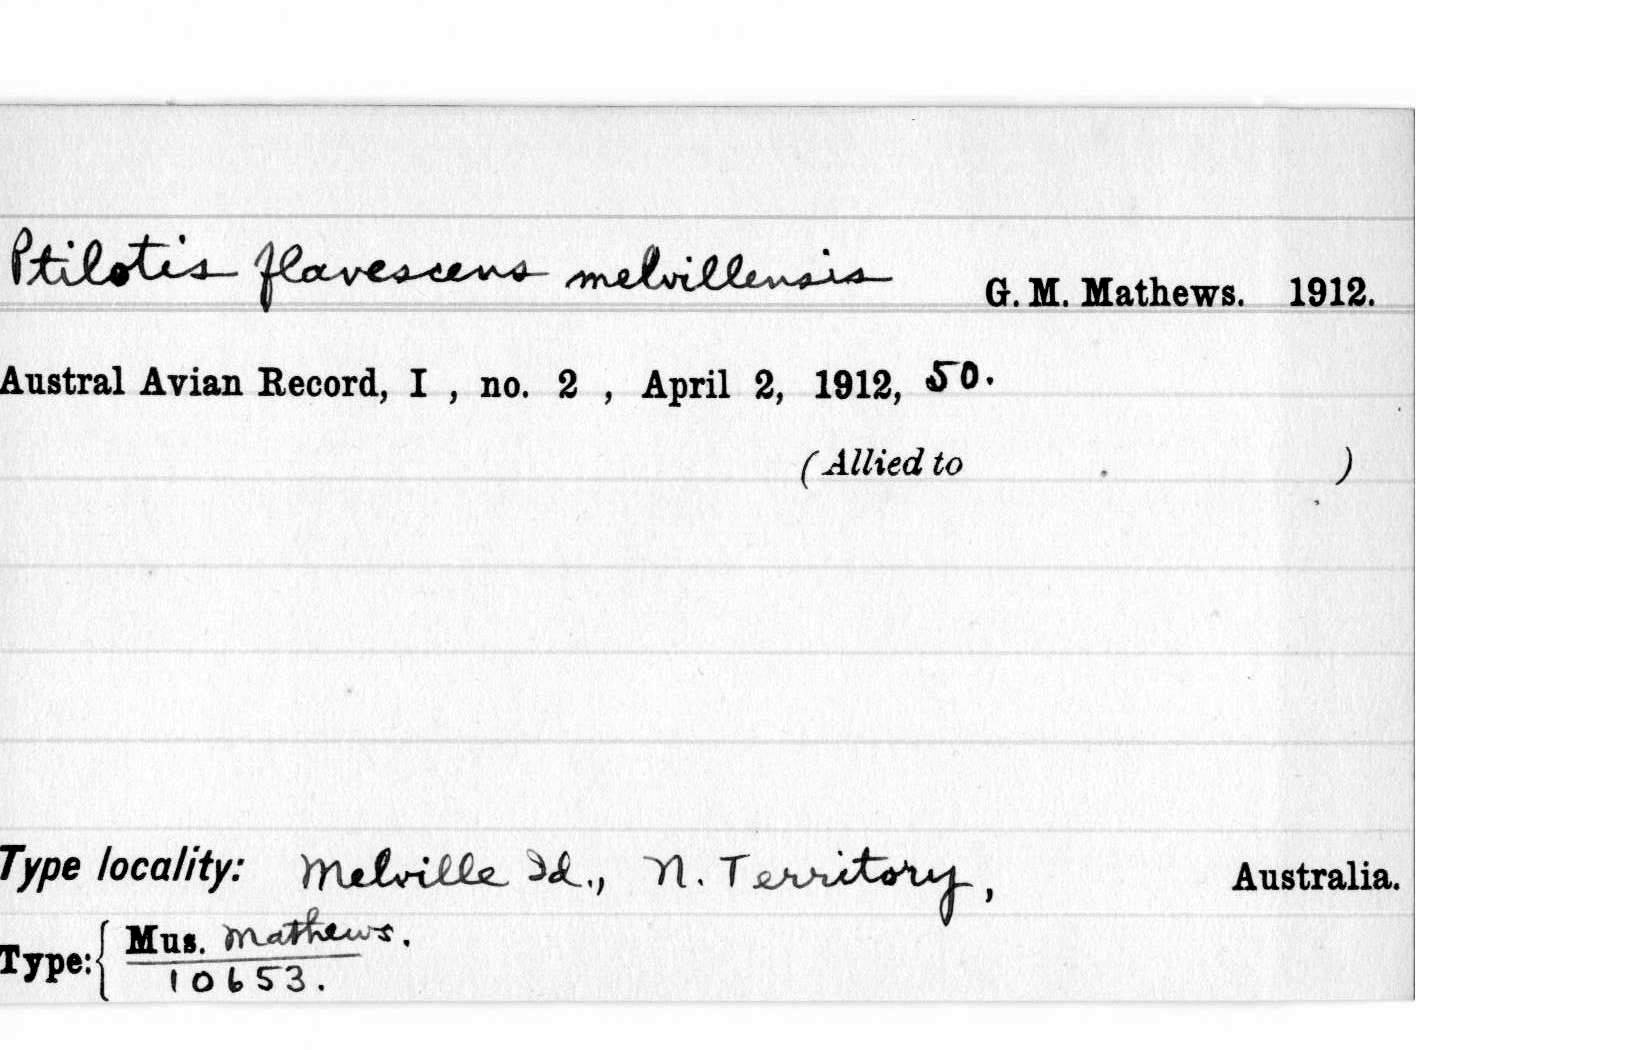 Ptilotis flavescens melvillensis G. M. Mathews. 1912.
Austral Avian Record, I , no. 2 , April 2, 1912, 50.
(Allied to )
Type locality: Melville Id., N. Territory, Australia.
Type: { Mus. Mathews.
10653.